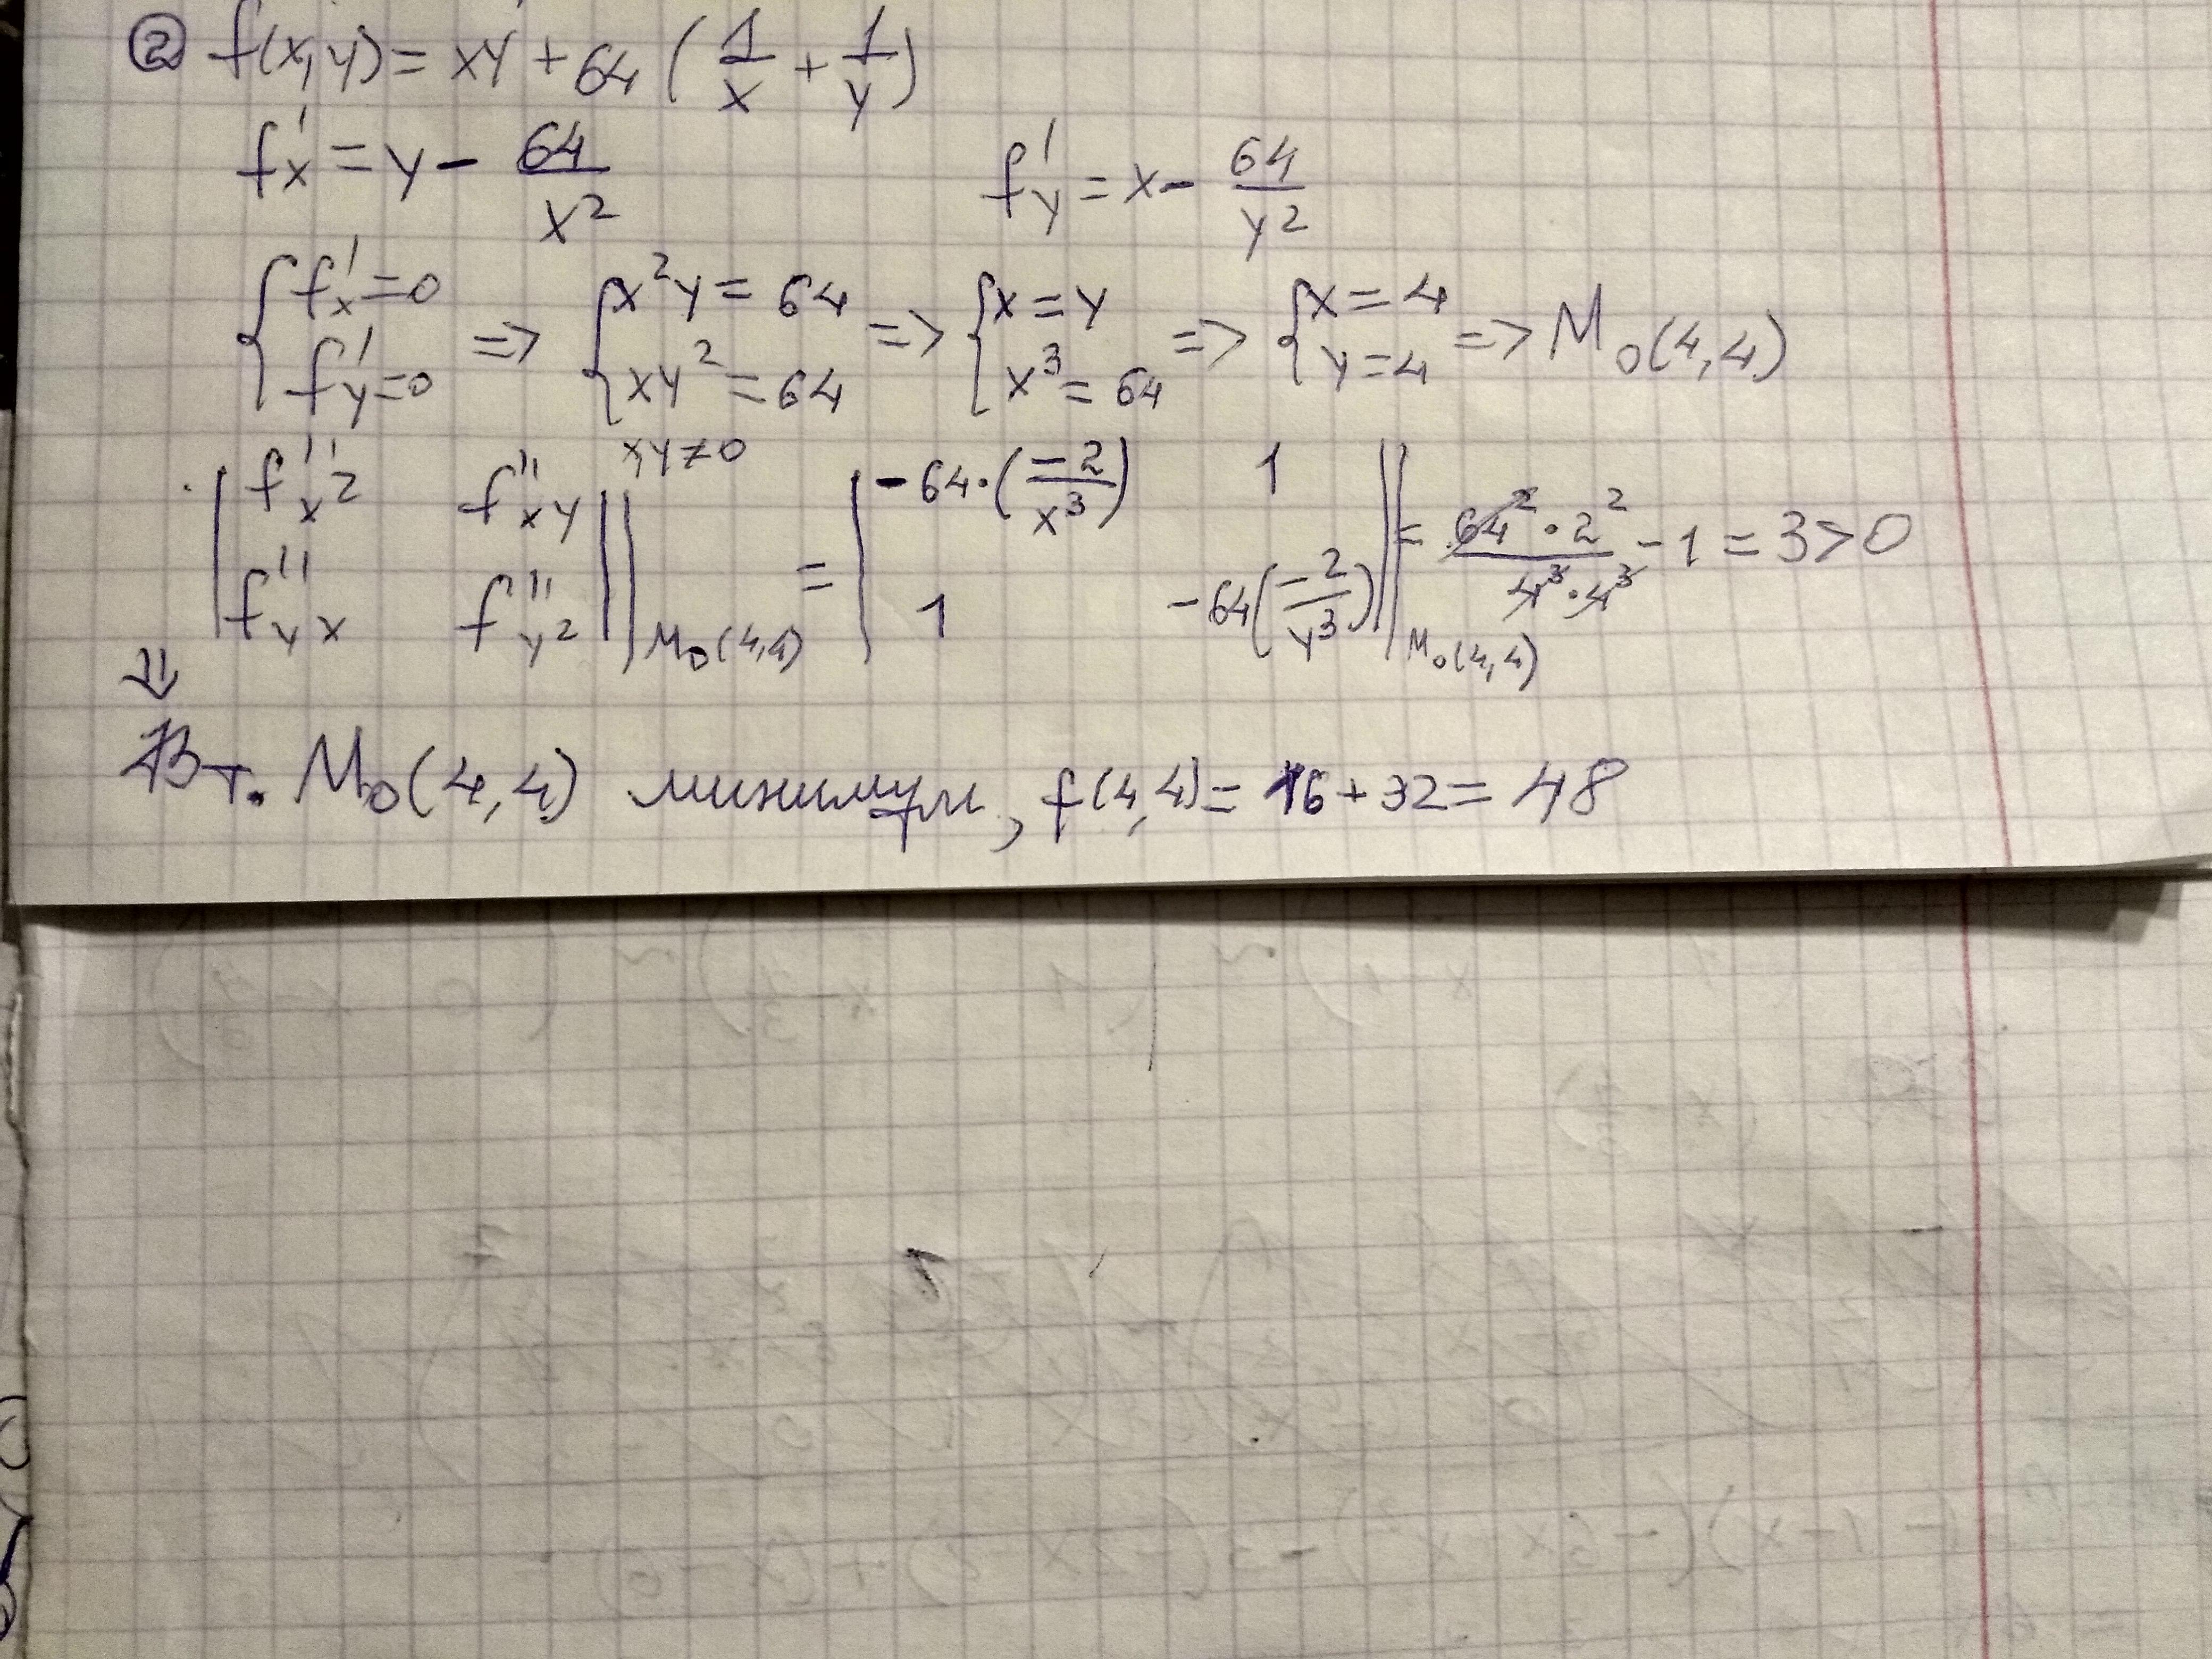 ② f(x,y) = xy + 64 (1/x + 1/y)
f'x = y - 64/x²    f'y = x - 64/y²
{f'x = 0, f'y = 0 => {x²y = 64, xy² = 64, xy ≠ 0 => {x = y, x³ = 64 => {x = 4, y = 4 => M₀(4,4)
|f''x² f''xy; f''yx f''y²||M₀(4,4) = |-64·(-2/x³) 1; 1 -64(-2/y³)||M₀(4,4) = 64²·2²/4³·4³ - 1 = 3 > 0
⇓
В т. M₀(4,4) минимум, f(4,4) = 16 + 32 = 48